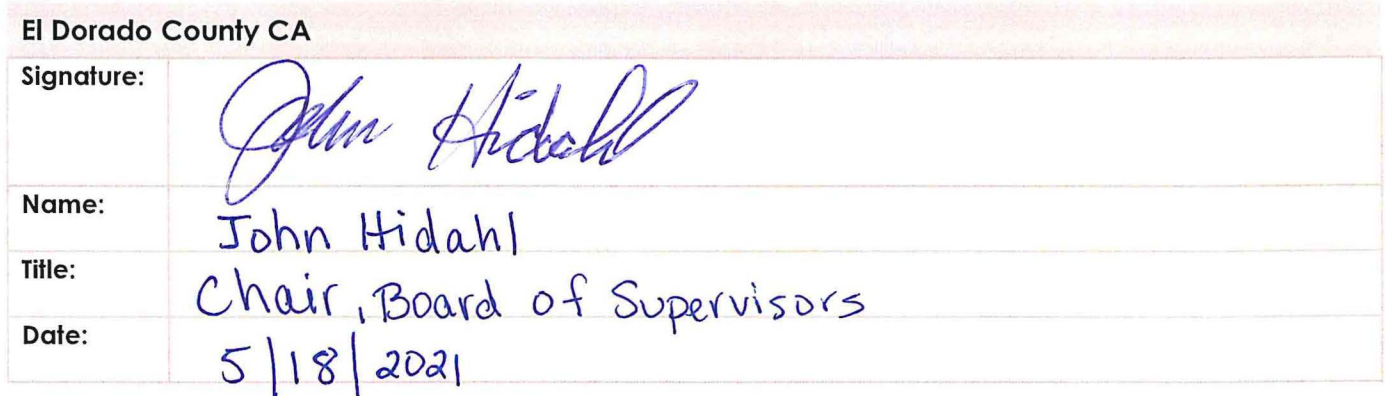 El Dorado County CA
Signature: John Hidahl
Name: John Hidahl
Title: Chair, Board of Supervisors
Date: 5/18/2021